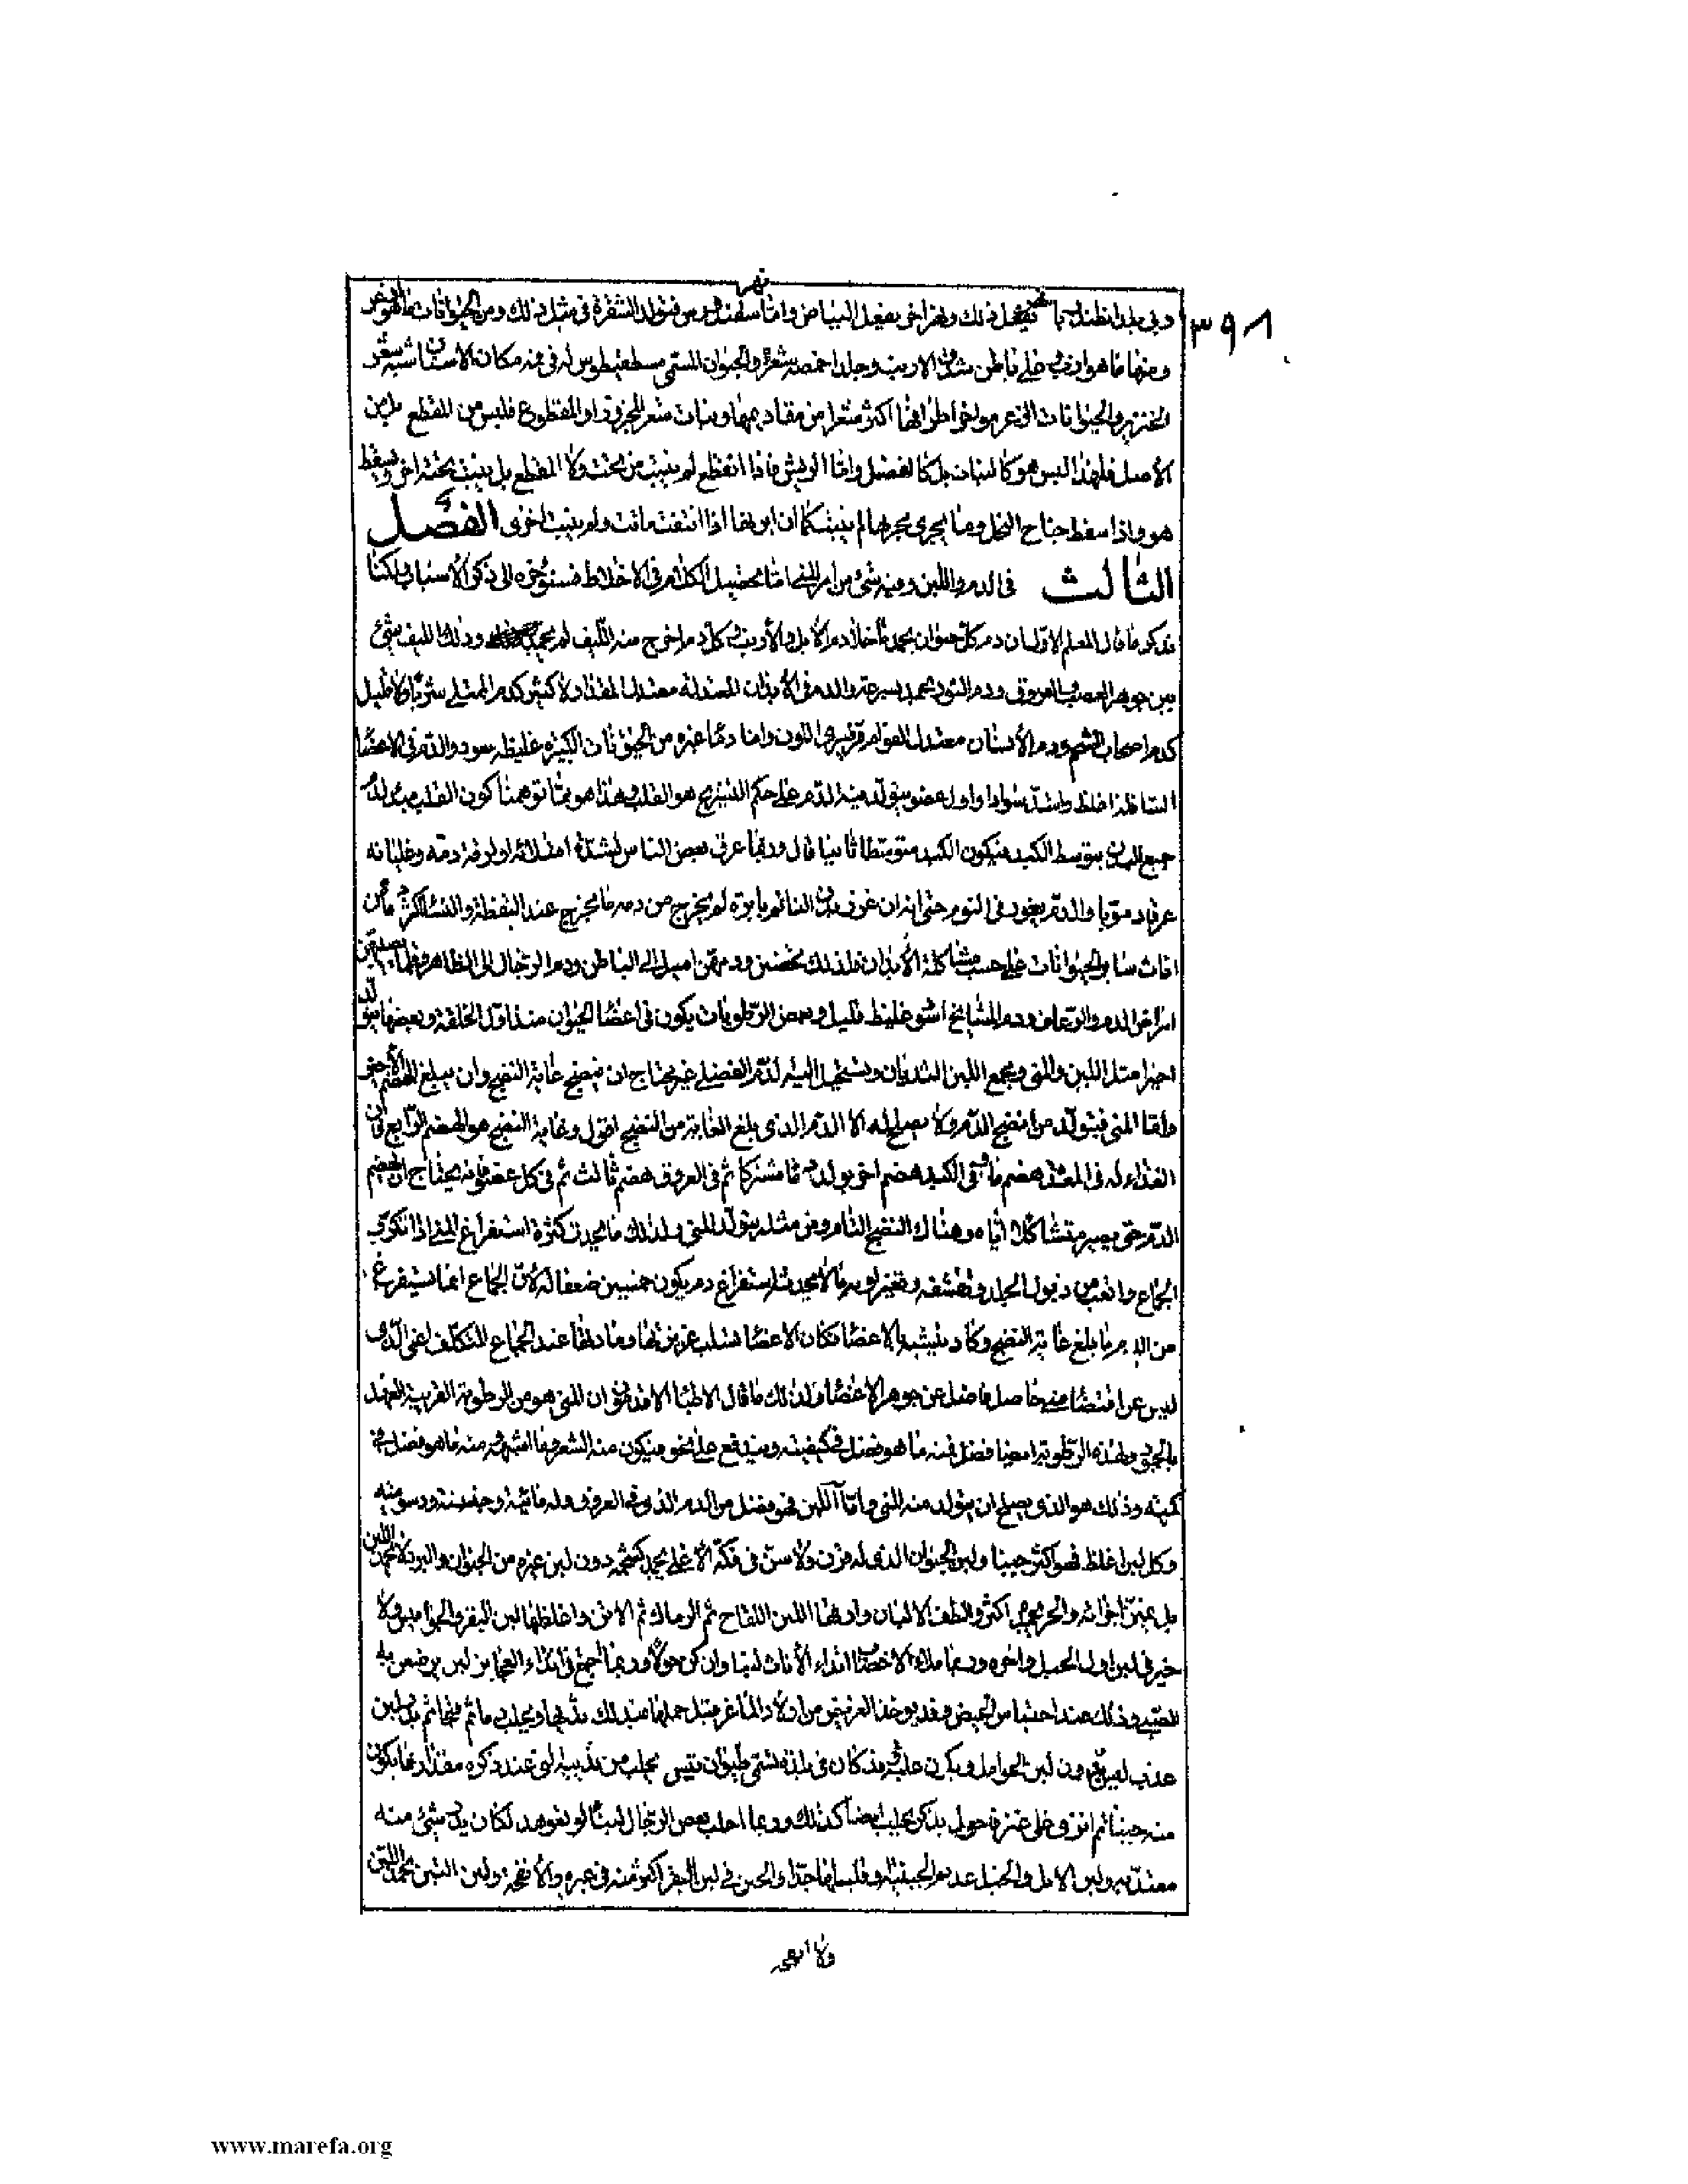 ٣٩٨
نهر
وفي بلد انطندريا نهر يفعل ذلك ونهر اخر يفعل البياض واما سقمندروس فتولد الشقرة في مثل ذلك ومن الحيوانات ما هو ازعر
ومنها ما هو ازب على باطن شدق الارنب وجلد اخمصه شعر والحيوان المسمى له في فمه مكان الاسنان اشبه بشعر
الخنزير والحيوانات الزعر مواخر اطرافها اكثر شعرا من مقاديمها ونبات شعر المجزوز او المقطوع فليس من المقطع بل من
الأصل فلهذا ليس هو كالنبات بل كالفضل واما الريش فاذا انقطع لم ينبت من تحت ولا المقطع بل ينبت تحته اخر ويسقط
هو واذا سقط جناح النحل وما يجري مجراها لم ينبت كما ان ابرتها اذا انتفت ماتت ولم ينبت اخرى الفصل
الثالث في الدم واللبن وفيه شئ من امر المنى اما تحصيل الكلام في الاخلاط فسنؤخره الى ذكر الأسباب ولكنا
نذكر ما قال المعلم الاول ان دم كل حيوان يجمد ما خلا دم الأيل والأرنب وكل دم اخرج منه الليف لم يجمد وذلك الليف شئ
بين جوهر العصب والعروق ودم الثور يجمد بسرعة والدم في الأبدان المعتدلة معتدل المقدار لا كثير كدم الممتلى شرابا ولا قليل
كدم اصحاب الشحم ودم الأنسان معتدل القوام قرمزي اللون واما دماء غيره من الحيوانات الكبيرة غليظة سود والدم في الاعضا
السافلة اغلظ واشد سوادا واول عضو يتولد فيه الدم على حكم التشريح هو القلب وهذا هو مما توهمنا كون القلب مبدأ لدم
جميع البدن بتوسط الكبد فيكون الكبد متوسطا ثانيا قال وربما عرق بعض الناس لشدة امتلائه او لرقة دمه وغليانه
عرقا دمويا والدم يغور في النوم حتى انه ان غرز بدن النائم بابرة لم يخرج من دمه ما يخرج عند اليقظة والنساء اكثر دما من
اناث سائر الحيوانات على حسب مشاكلة الأبدان فلذلك يحضن ودمهن اميل الى الباطن ودم الرجال الى الظاهر وقلما يصيبهن
امراض الدم والرعاف ودم المشايخ اسود غليظ قليل وبعض الرطوبات يكون في اعضا الحيوان منذ اول الخلقة وبعضها يتولد
اخيرا مثل اللبن والمنى ويجمع اللبن الثديان ويستحيل اليه الدم الفضلى غير محتاج ان ينضج غاية النضج وان يبلغ الهضم الأخير
واما المنى فيتولد من انضج الدم ولا يصلح له الا الدم الذى بلغ الغاية من النضج اقول وغاية النضج هو الهضم الرابع فان
الغذاء له في المعدة هضم ما ثم في الكبد هضم اخر يولد دما مشتركا ثم في العروق هضم ثالث ثم في كل عضو فانه يحتاج ان يهضم
الدم حتى يصير مشاكلا اياه وهناك النضج التام ومن مثله يتولد المنى ولذلك ما يحدث كثرة استفراغ المنى اذا تكرر
الجماع واتعب من ذبول الجلد وقشفه وتغير لونه ما لا يحدثه استفراغ دم يكون خمسين ضعفا له لأن الجماع انما يستفرغ
من الدم ما بلغ غاية النضج وكاد يتشبه بالاعضا فكان الاعضا تسلب غريزتها ومادتها عند الجماع المتكلف اعنى الذى
ليس عن اقتضاء منى حاصل فاضل عن جوهر الاعضا ولذلك ما قال الاطبا الاقدمون ان المنى هو من الرطوبة القريبة العهد
بالجمود ولهذه الرطوبة ايضا فضل فمنه ما هو فضل في كيفيته ويندفع على نحو فيكون منه الشعر وما اشبهه ومنه ما هو فضل في
كميته وذلك هو الذى يصلح ان يتولد منه المنى واما اللبن فهو فضل من الدم الذى في العروق وله مائية وجبنية ودسومة
وكل لبن اغلظ فهو اكثر جبنا ولبن الحيوان الذى له قرن ولا سن في فكه الأعلى يجمد كشحمه دون لبن غيره من الحيوان والبرد لا يجمد اللبن
بل يميز اجزائه والحر يجمد اكثر والطف الالبان وارقها اللبن اللقاح ثم الرماك ثم الاتن واغلظها لبن البقر والجواميس ولا
خير في لبن اول الحبل واخره وربما ملاء الأخصاب اثداء الأناث لبنا وان كن حولا وربما اجتمع في اثداء العجايز لبن يرضعن به
الصبى وذلك عند احتباس الحيض وقد يوخذ العريض من اولاد الماعز قبل حملها فيدلك ثديها ويحلب دما ثم قيحا ثم يدر لبن
عذب ليس دون لبن الحوامل ويكون عليه وقد كان في بلدة تسمى تيس يحلب من ثدييه التى عند ذكره مقدار ما يكون
منه جبنا ثم انزى على عنزة حول بذكر يحلب ايضا كذلك وربما احلب بعض الرجال لبنا لو تعوهد لكان يدر شئ منه
معتد به ولبن الابل والخيل عديم الجبنية او قليلها جدا والجبن في لبن البقر اكثر منه في غيره والأنفحة ولبن التين يجمد اللبن
ولا
www.marefa.org